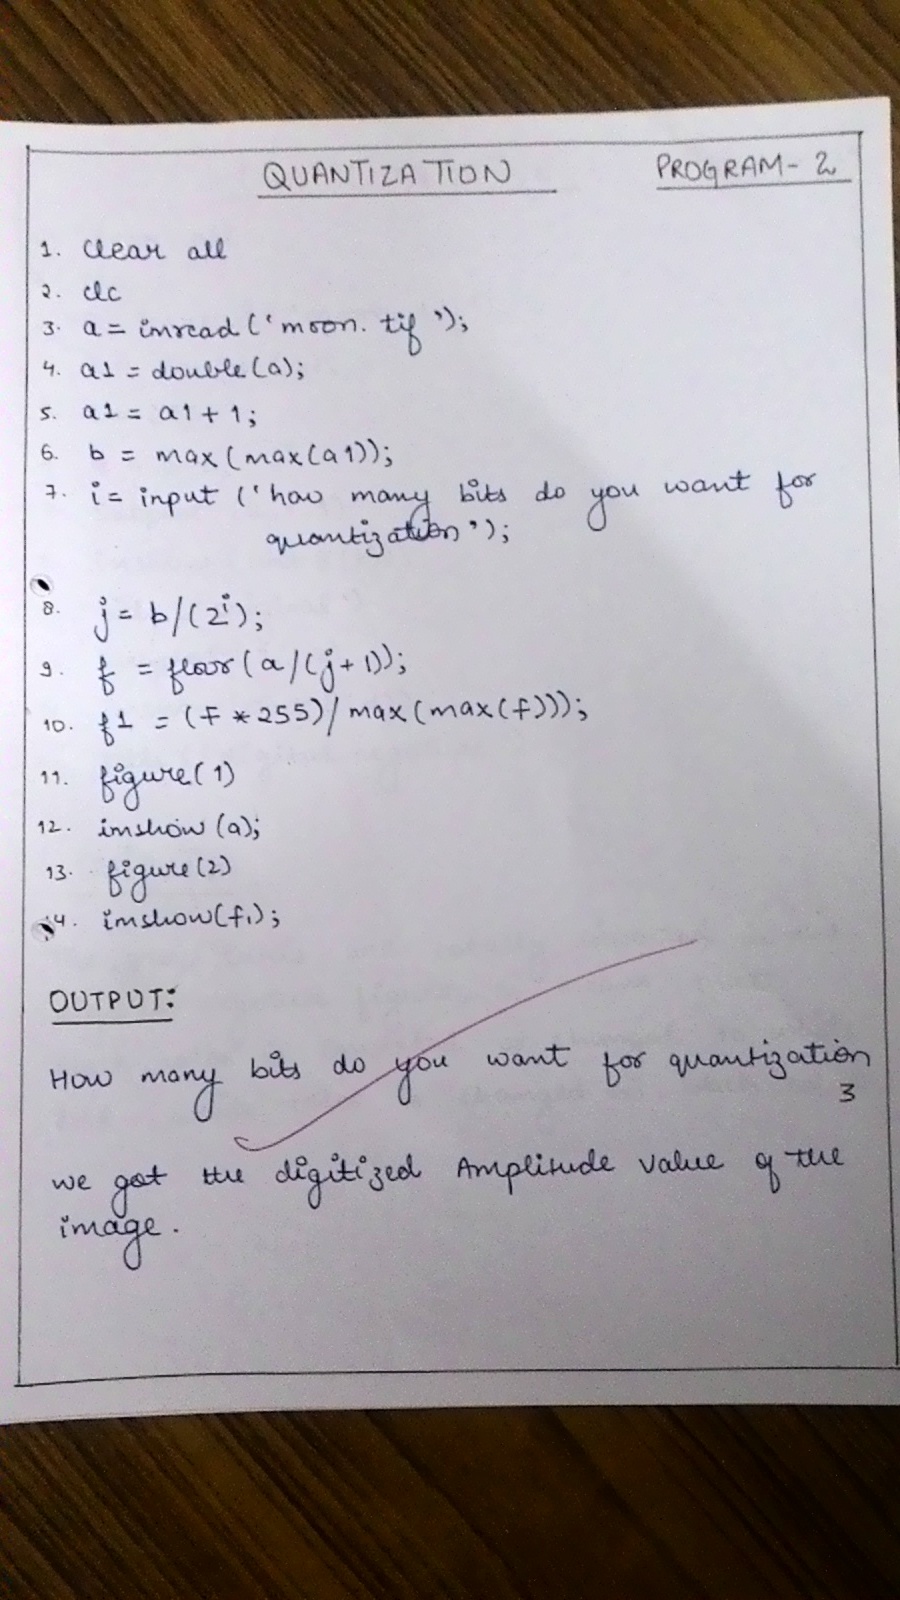 QUANTIZATION PROGRAM-2
1. clear all
2. clc
3. a = imread ('moon. tif ');
4. a1 = double (a);
5. a1 = a1 + 1;
6. b = max (max (a1));
7. i = input ('how many bits do you want for
quantization');
8. j = b/(2^i);
9. f = floor (a / (j+1));
10. f1 = (f * 255) / max (max (f)));
11. figure (1)
12. imshow (a);
13. figure (2)
14. imshow (f1);
OUTPUT:
How many bits do you want for quantization
3
we got the digitized Amplitude value of the
image.